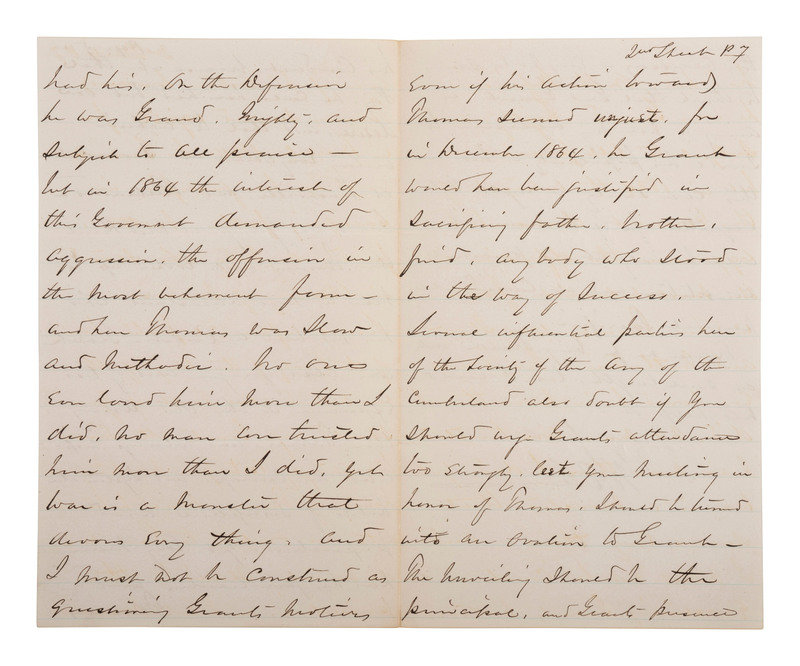 had his. On the Defensive
he was Grand. Mighty. and
subject to all praise —
but in 1864 the interest of
this Government demanded
aggression. the offensive in
the most vehement form —
and here Thomas was slow
and methodic. No one
Ever loved him more than I
did. no man ever trusted
him more than I did. yet
War is a Monster that
devours Every thing. and
I must not be construed as
questioning Grants motives
2nd Sheet P 7
Even if his action towards
Thomas seemed unjust. for
in December 1864. he Grant
would have been justified in
sacrificing father. brother.
friend. anybody who stood
in the way of Success.
Some influential parties here
of the Society of the Army of the
Cumberland also doubt if you
should urge Grants attendance
too strongly. lest your meeting in
honor of Thomas. should be turned
into an ovation to Grant —
The Unveiling should be the
principal. and Grants presence